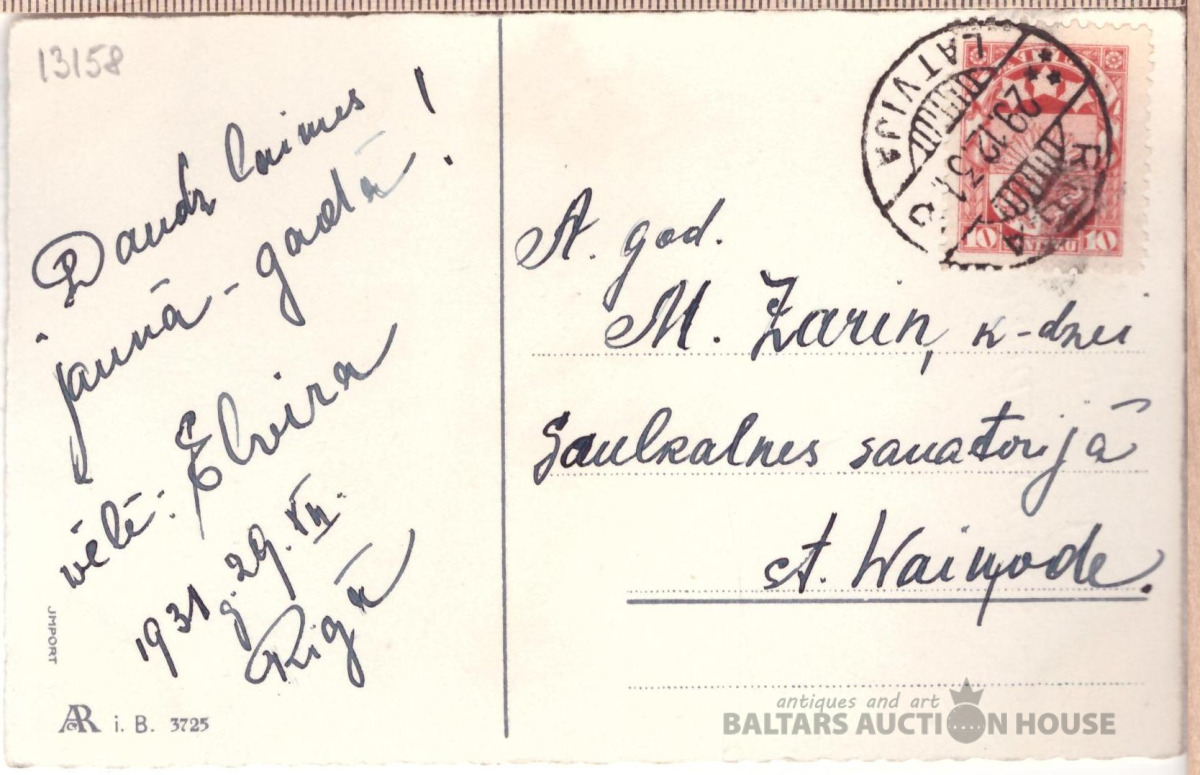 13158
Daudz laimes
jaunā - gadā!
vēlē: Elvira
1931 g. 29. XII.
Rīgā
JMPORT
AR i. B. 3725
LATVIJA
29.12.31
RIGA
10 10
A. god.
M. Zariņ k-dzei
Saulkalnes sanatorijā
st. Waiņode.
antiques and art
BALTARS AUCTION HOUSE